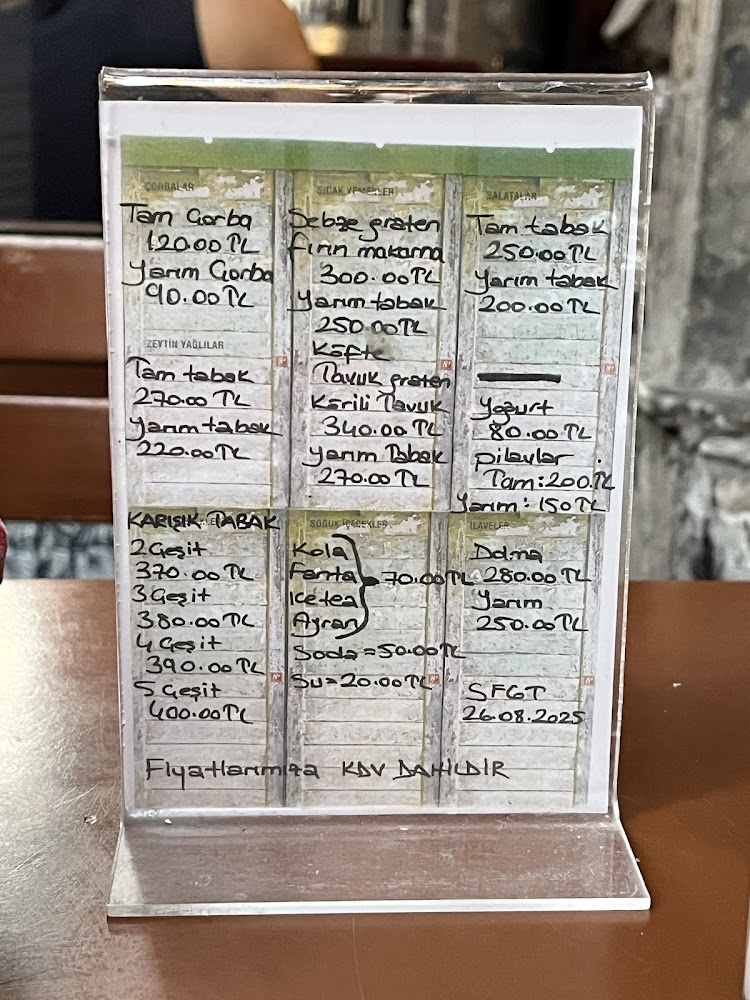 ÇORBALAR
Tam Çorba
120.00 TL
Yarım Çorba
90.00 TL
ZEYTİN YAĞLILAR
Tam tabak
270.00 TL
Yarım tabak
220.00 TL
SICAK YEMEKLER
Sebze graten
Fırın makarna
300.00 TL
Yarım tabak
250.00 TL
Köfte
Tavuk graten
Körili Tavuk
340.00 TL
Yarım Tabak
270.00 TL
SALATALAR
Tam tabak
250.00 TL
Yarım tabak
200.00 TL
Yoğurt
80.00 TL
Pilavlar
Tam: 200.TL
Yarım: 150 TL
KARIŞIK TABAK
2 Çeşit
370.00 TL
3 Çeşit
380.00 TL
4 Çeşit
390.00 TL
5 Çeşit
400.00 TL
SOĞUK İÇECEKLER
Kola
Fanta
Icetea
Ayran
70.00 TL
Soda = 50.00 TL
Su = 20.00 TL
İLAVELER
Dolma
280.00 TL
Yarım
250.00 TL
SFGT
26.08.2025
Fiyatlarımıza KDV DAHİLDİR